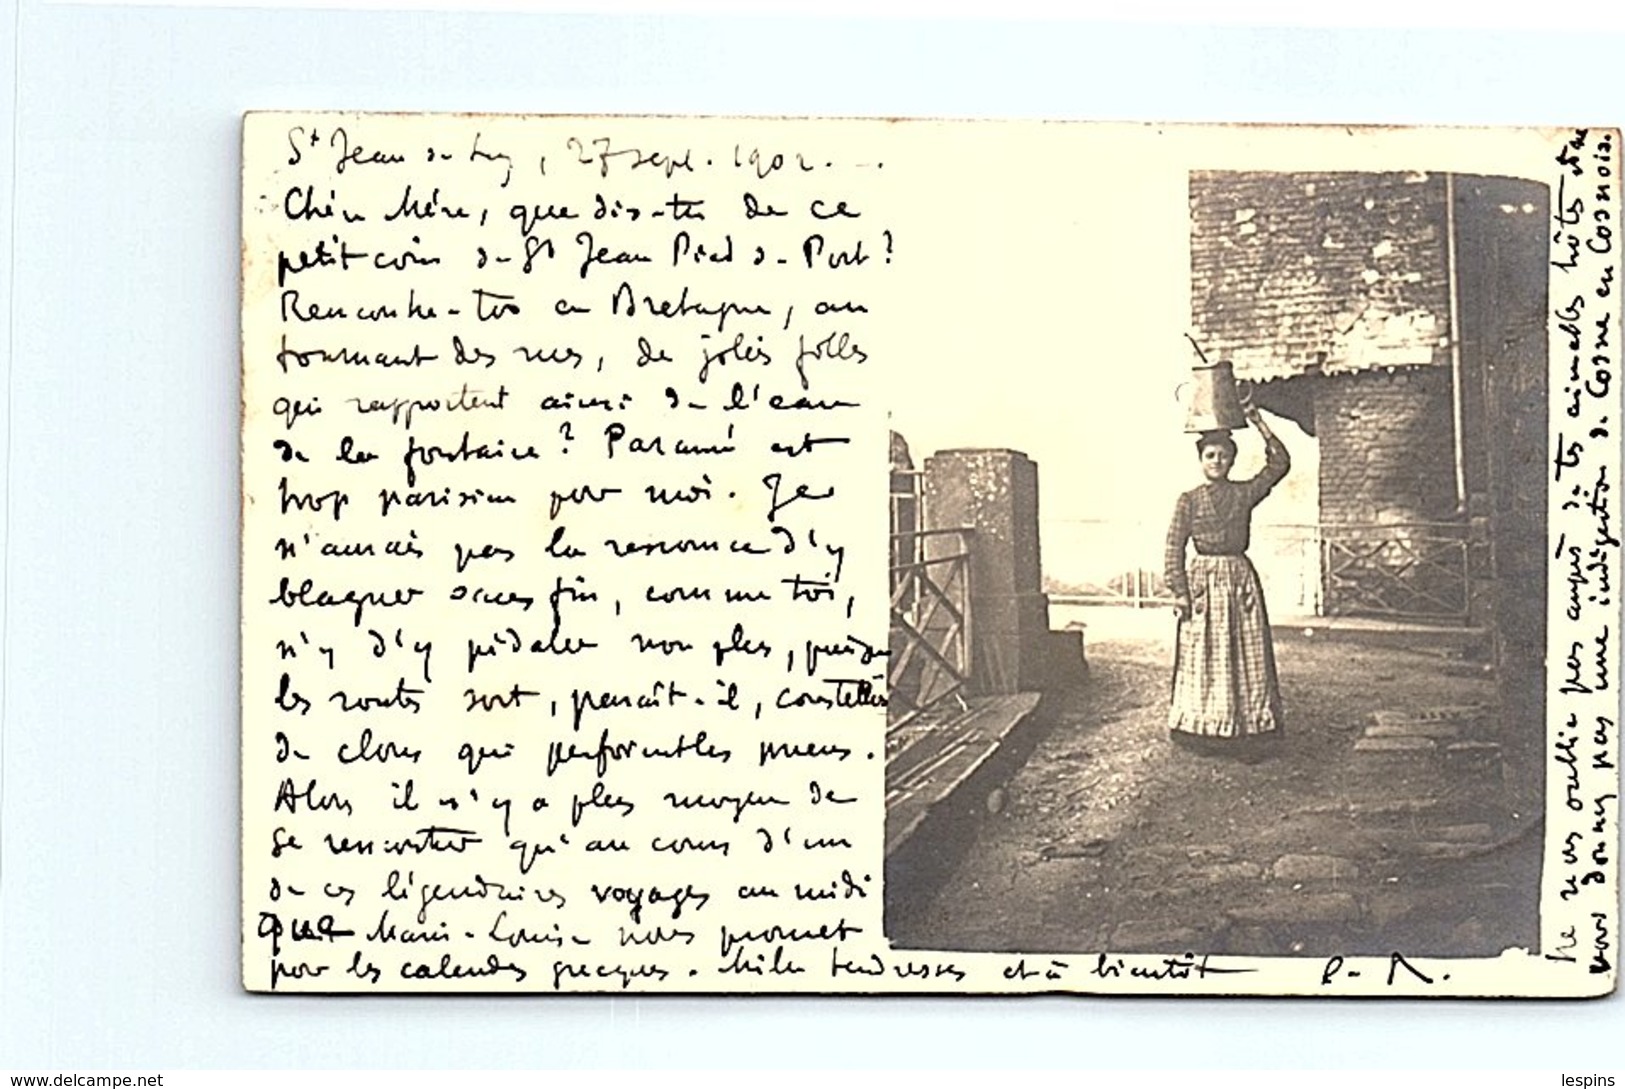 St Jean de Luz, 27 sept. 1902. -.
Chère Mère, que dis-tu de ce
petit coin de St Jean Pied de Port?
Rencontre-tu en Bretagne, au
tournant des rues, de jolies filles
qui rapportent ainsi de l'eau
de la fontaine? Paramé est
trop parisien pour moi. Je
n'aurais pas la ressource d'y
blaguer sans fin, comme toi,
n'y d'y pédaler non plus, puisque
les routes sont, paraît-il, constellées
de clous qui perforent les pneus.
Alors il n'y a plus moyen de
se rencontrer qu'au cours d'un
de ces légendaires voyages au midi
que Marie-Louise nous promet
pour les calendes grecques. Mille tendresses et à bientôt
Ne nous oublie pas auprès de tes aimables hôtes et ne
vous donnez pas une indigestion de Cosne en Cosnois.
www.delcampe.net
lespins